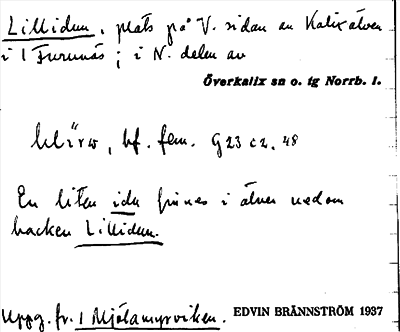 Lillidun, plats på V. sidan av Kalixälven
i 1 Furunäs; i N. delen av
Överkalix sn o. tg Norrb. l.
bf. fem. G23 c2, 48
En liten ida finnes i älven nedom
backen Lillidun.
Uppg. fr. 1 Mjölamyrviken. EDVIN BRÄNNSTRÖM 1937